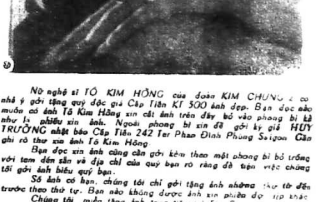 Nữ nghệ sĩ TÔ KIM HỒNG của đoàn KIM CHUNG 2 có
nhã ý gởi tặng quý độc giả Cấp Tiến KT 500 ảnh đẹp. Bạn đọc nào
muốn có ảnh Tô Kim Hồng xin cắt ảnh trên đây bỏ vào phong bì kể
như là phiếu xin ảnh. Ngoài phong bì xin đề gởi ký giả HUY
TRƯỜNG nhật báo Cấp Tiến 242 Ter Phan Đình Phùng Saigon. Cần
ghi rõ thư xin ảnh Tô Kim Hồng.
Bạn đọc xin ảnh cũng cần gởi kèm theo một phong bì bỏ trống
với tem dán sẵn và địa chỉ của quý bạn rõ ràng để tiện việc chúng
tôi gởi ảnh biếu quý bạn.
Số ảnh có hạn, chúng tôi chỉ gởi tặng ảnh những thư từ đến
trước theo thứ tự. Bạn nào không được ảnh xin miễn
Chúng tôi